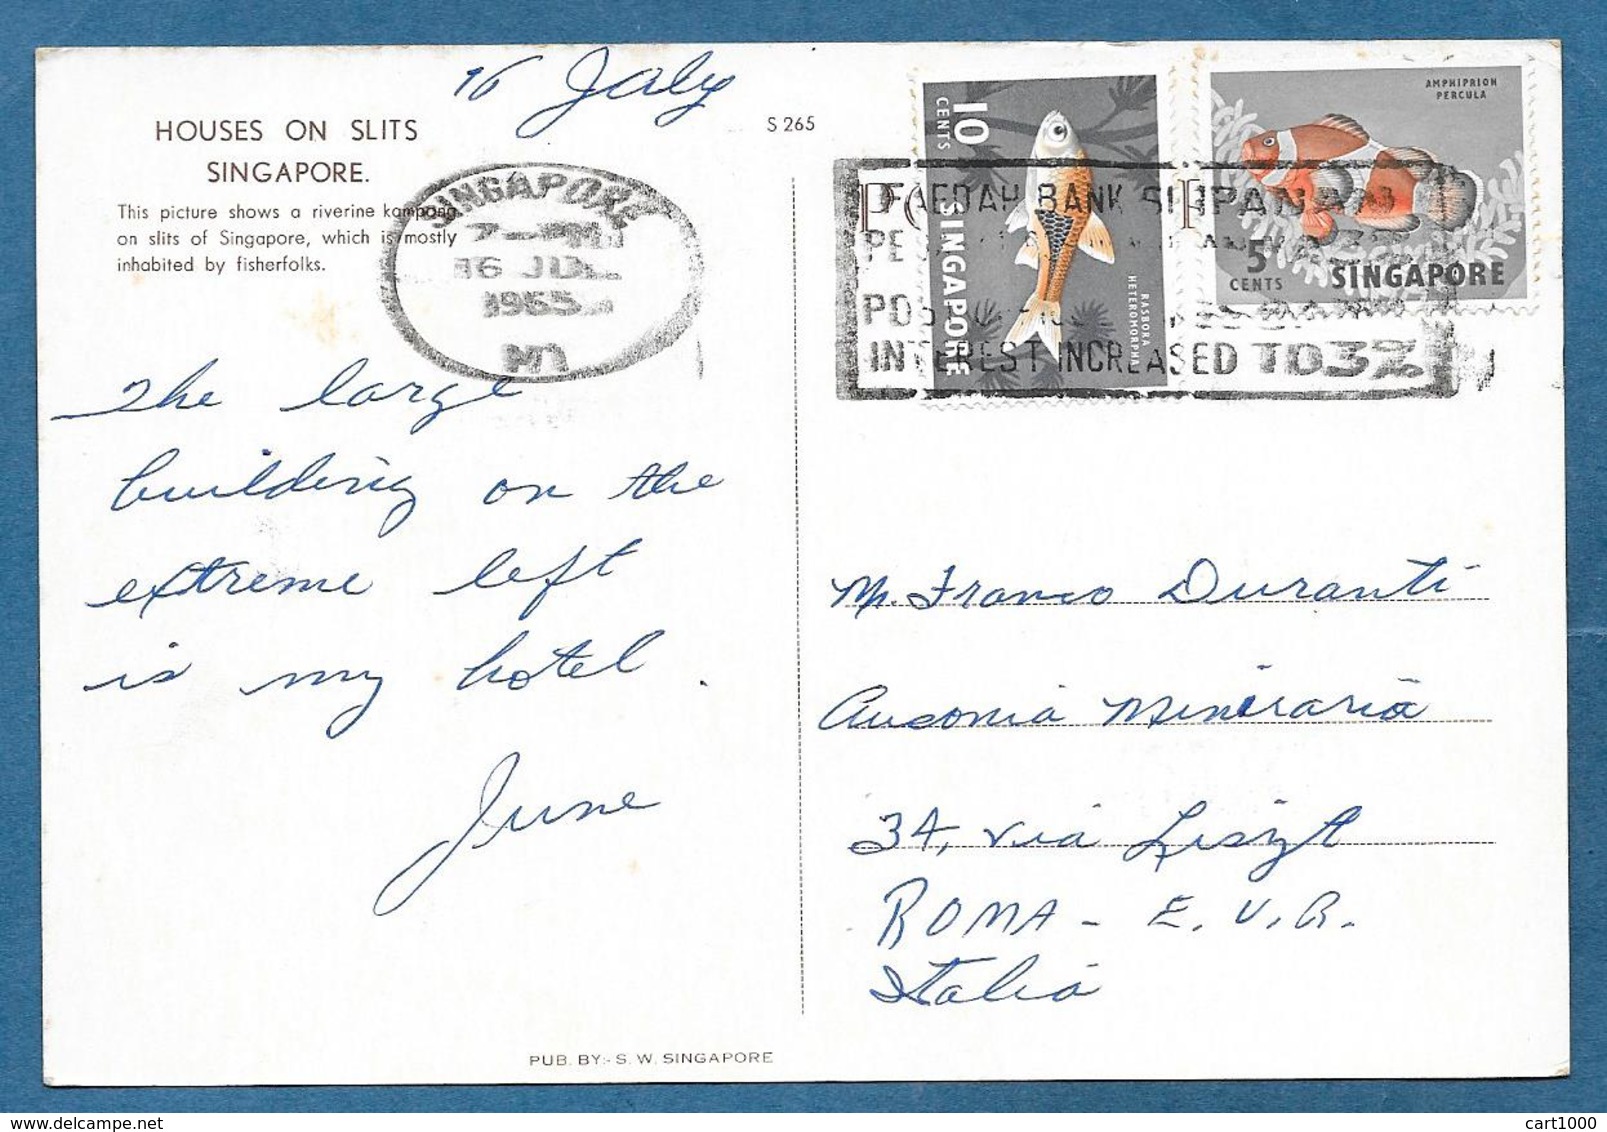 16 July
HOUSES ON SLITS
SINGAPORE.
This picture shows a riverine kampong
on slits of Singapore, which is mostly
inhabited by fisherfolks.
S 265
SINGAPORE
7-PM
16 JUL
1965
The large
building on the
extreme left
is my hotel.
June
PUB. BY:- S. W. SINGAPORE
10
CENTS
SINGAPORE
RASBORA
HETEROMORPHA
AMPHIPRION
PERCULA
5
CENTS
SINGAPORE
FAEDAH BANK SIMPANAN
INTEREST INCREASED TO 3%
Mr. Franco Duranti
Ausonia Mineraria
34, via Liszt
ROMA - E. U. R.
Italia
cart1000